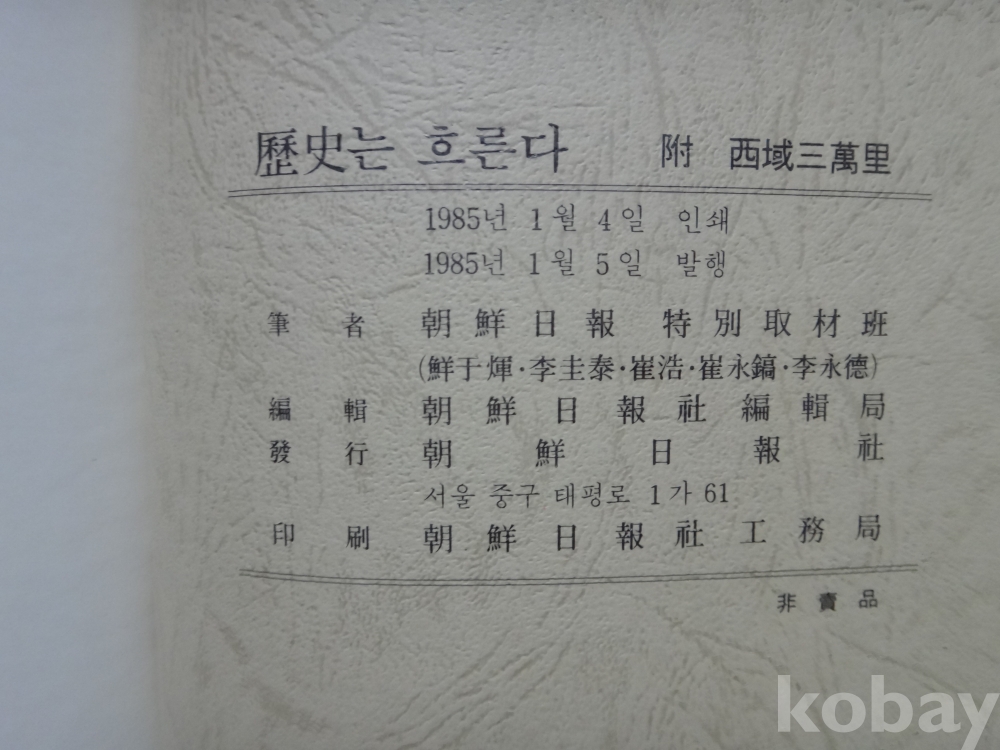 歷史는 흐른다 附 西域三萬里
1985년 1월 4일 인쇄
1985년 1월 5일 발행
筆者 朝鮮日報 特別取材班
(鮮于煇·李圭泰·崔浩·崔永鎬·李永德)
編輯 朝鮮日報社編輯局
發行 朝鮮日報社
서울 중구 태평로 1가 61
印刷 朝鮮日報社工務局
非賣品
kobay